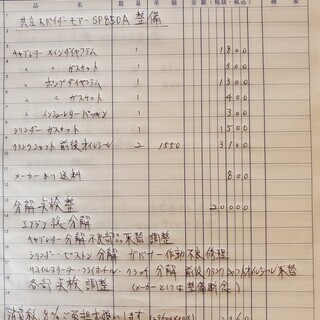 品 名 数量 単価 金額(税抜・税込)
共立スパイダーモアー SP850A 整備
キャブレター メインダイヤフラム 1 1800
〃 ガスケット 1 300
〃 ポンプダイヤフラム 1 1300
〃 ガスケット 1 400
〃 インシュレーターパッキン 1 300
シリンダーガスケット 1 1500
クランクシャフト前後オイルシール 2 1550 3100
メーカーより送料 800
分解点検整 20000
エアクリ後分解
キャブレター分解不良部品交換調整
シリンダー ピストン分解 ガバナー作動不良修理
リコイルスターター フライホイール クラッチ分解 前後クランクシャフトオイルシール交換
各部点検調整 (メーカーとしては整備断念)
消費税 8%ご負担お願いします